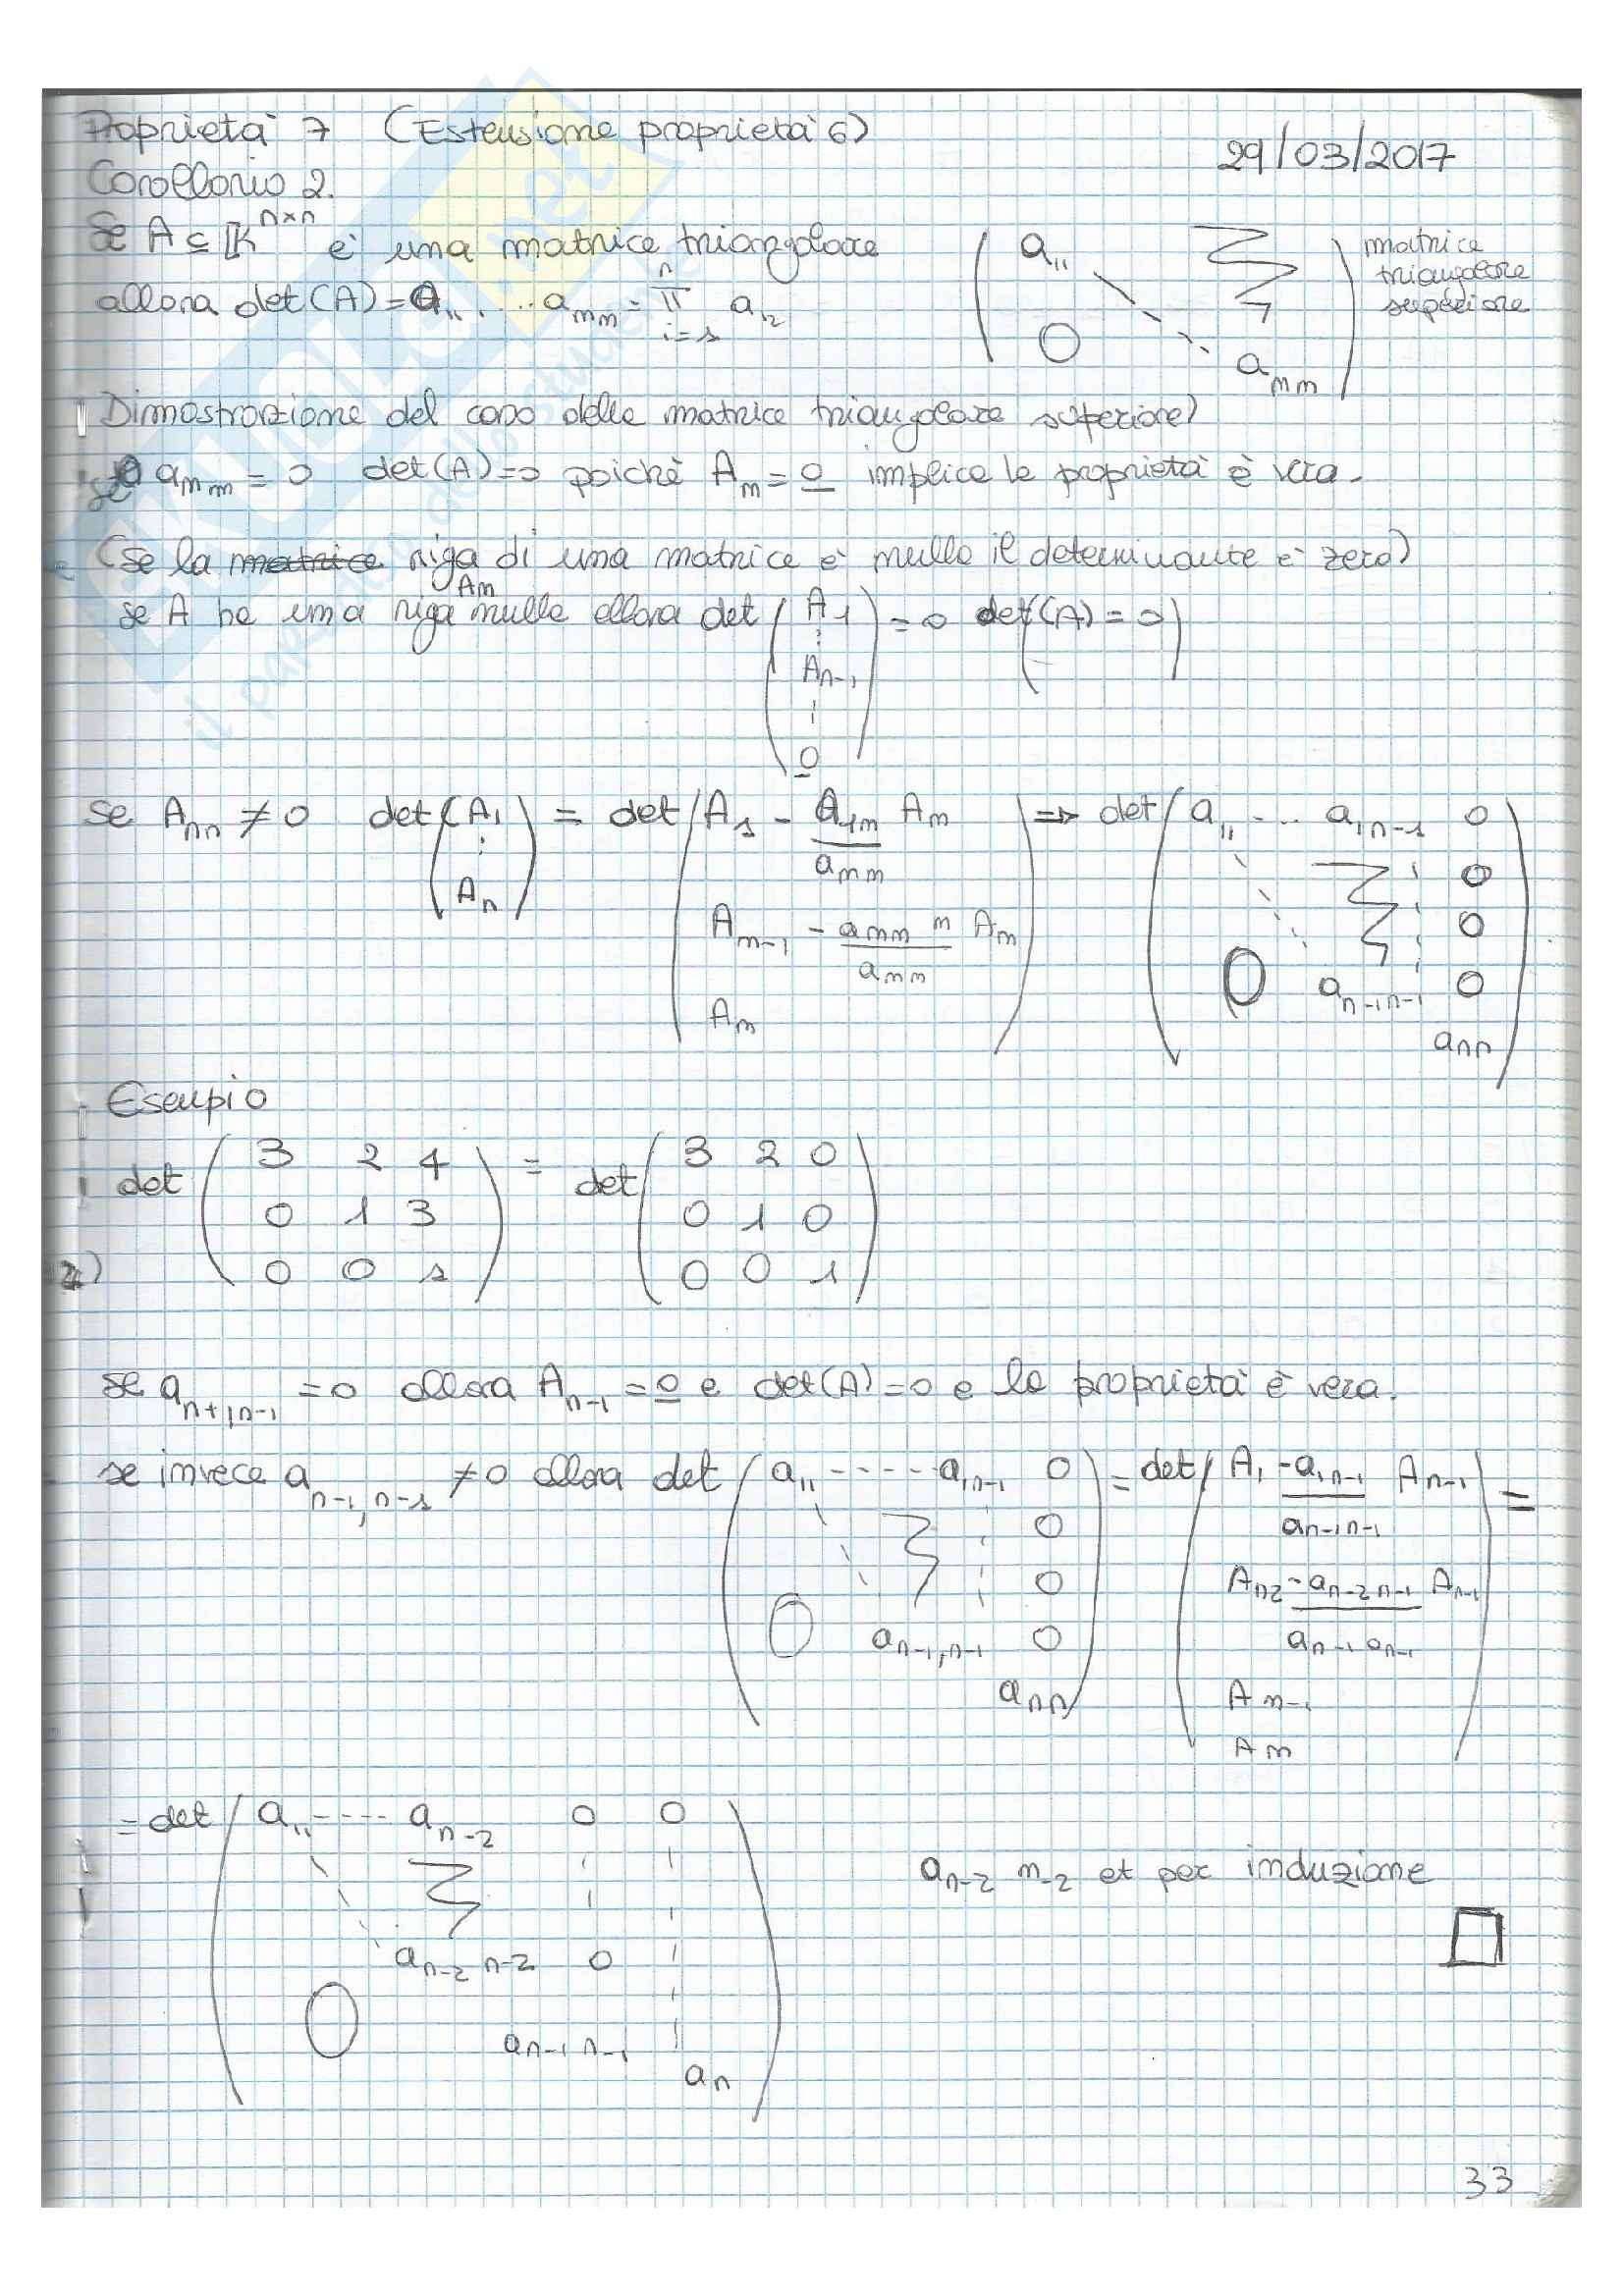 Proprietà 7 (Estensione proprietà 6)
29/03/2017
Corollario 2.
Se A ⊆ K^{n×n} è una matrice triangolare
allora det(A) = a_{11} . ... a_{nn} = ∏_{i=1}^{n} a_{i2}
( a_{11} 0 a_{nn} )
matrice
triangolare
superiore
Dimostrazione del caso delle matrice triangolare superiore)
se a_{nn} = 0 det(A)=0 poiché A_n = 0 implica la proprietà è vera.
(se la matrice riga di una matrice è nulla il determinante è zero)
A_n
se A ha una riga nulla allora det ( A_1 ⋮ A_{n-1} ¦ 0 ) = 0 det(A) = 0 )
se A_{nn} ≠ 0 det ( A_1 ⋮ A_n ) = det ( A_1 - a_{1n}/a_{nn} A_n
A_{n-1} - a_{nn} n/a_{nn} A_n
A_n ) => det ( a_{11} ... a_{1n-1} 0
0
0
0 a_{n-1n-1} 0
a_{nn} )
Esempio
det ( 3 2 4 = det ( 3 2 0
0 1 3 0 1 0
0 0 1 ) 0 0 1 )
se a_{n+1,n-1} = 0 allora A_{n-1} = 0 e det(A)=0 e la proprietà è vera.
se invece a_{n-1,n-1} ≠ 0 allora det ( a_{11} ----- a_{1n-1} 0
0
0
0 a_{n-1,n-1} 0
a_{nn} ) = det ( A_1 - a_{1n-1}/a_{n-1n-1} A_{n-1}
A_{n2} - a_{n-2n-1}/a_{n-1 an-1} A_{n-1}
A_{n-1}
A_n ) =
= det ( a_{11} ---- a_{n-2} 0 0
a_{n-2 n-2} 0
0
a_{n-1 n-1}
a_n )
a_{n-2 n-2} et per induzione
□
33
il
dello studente